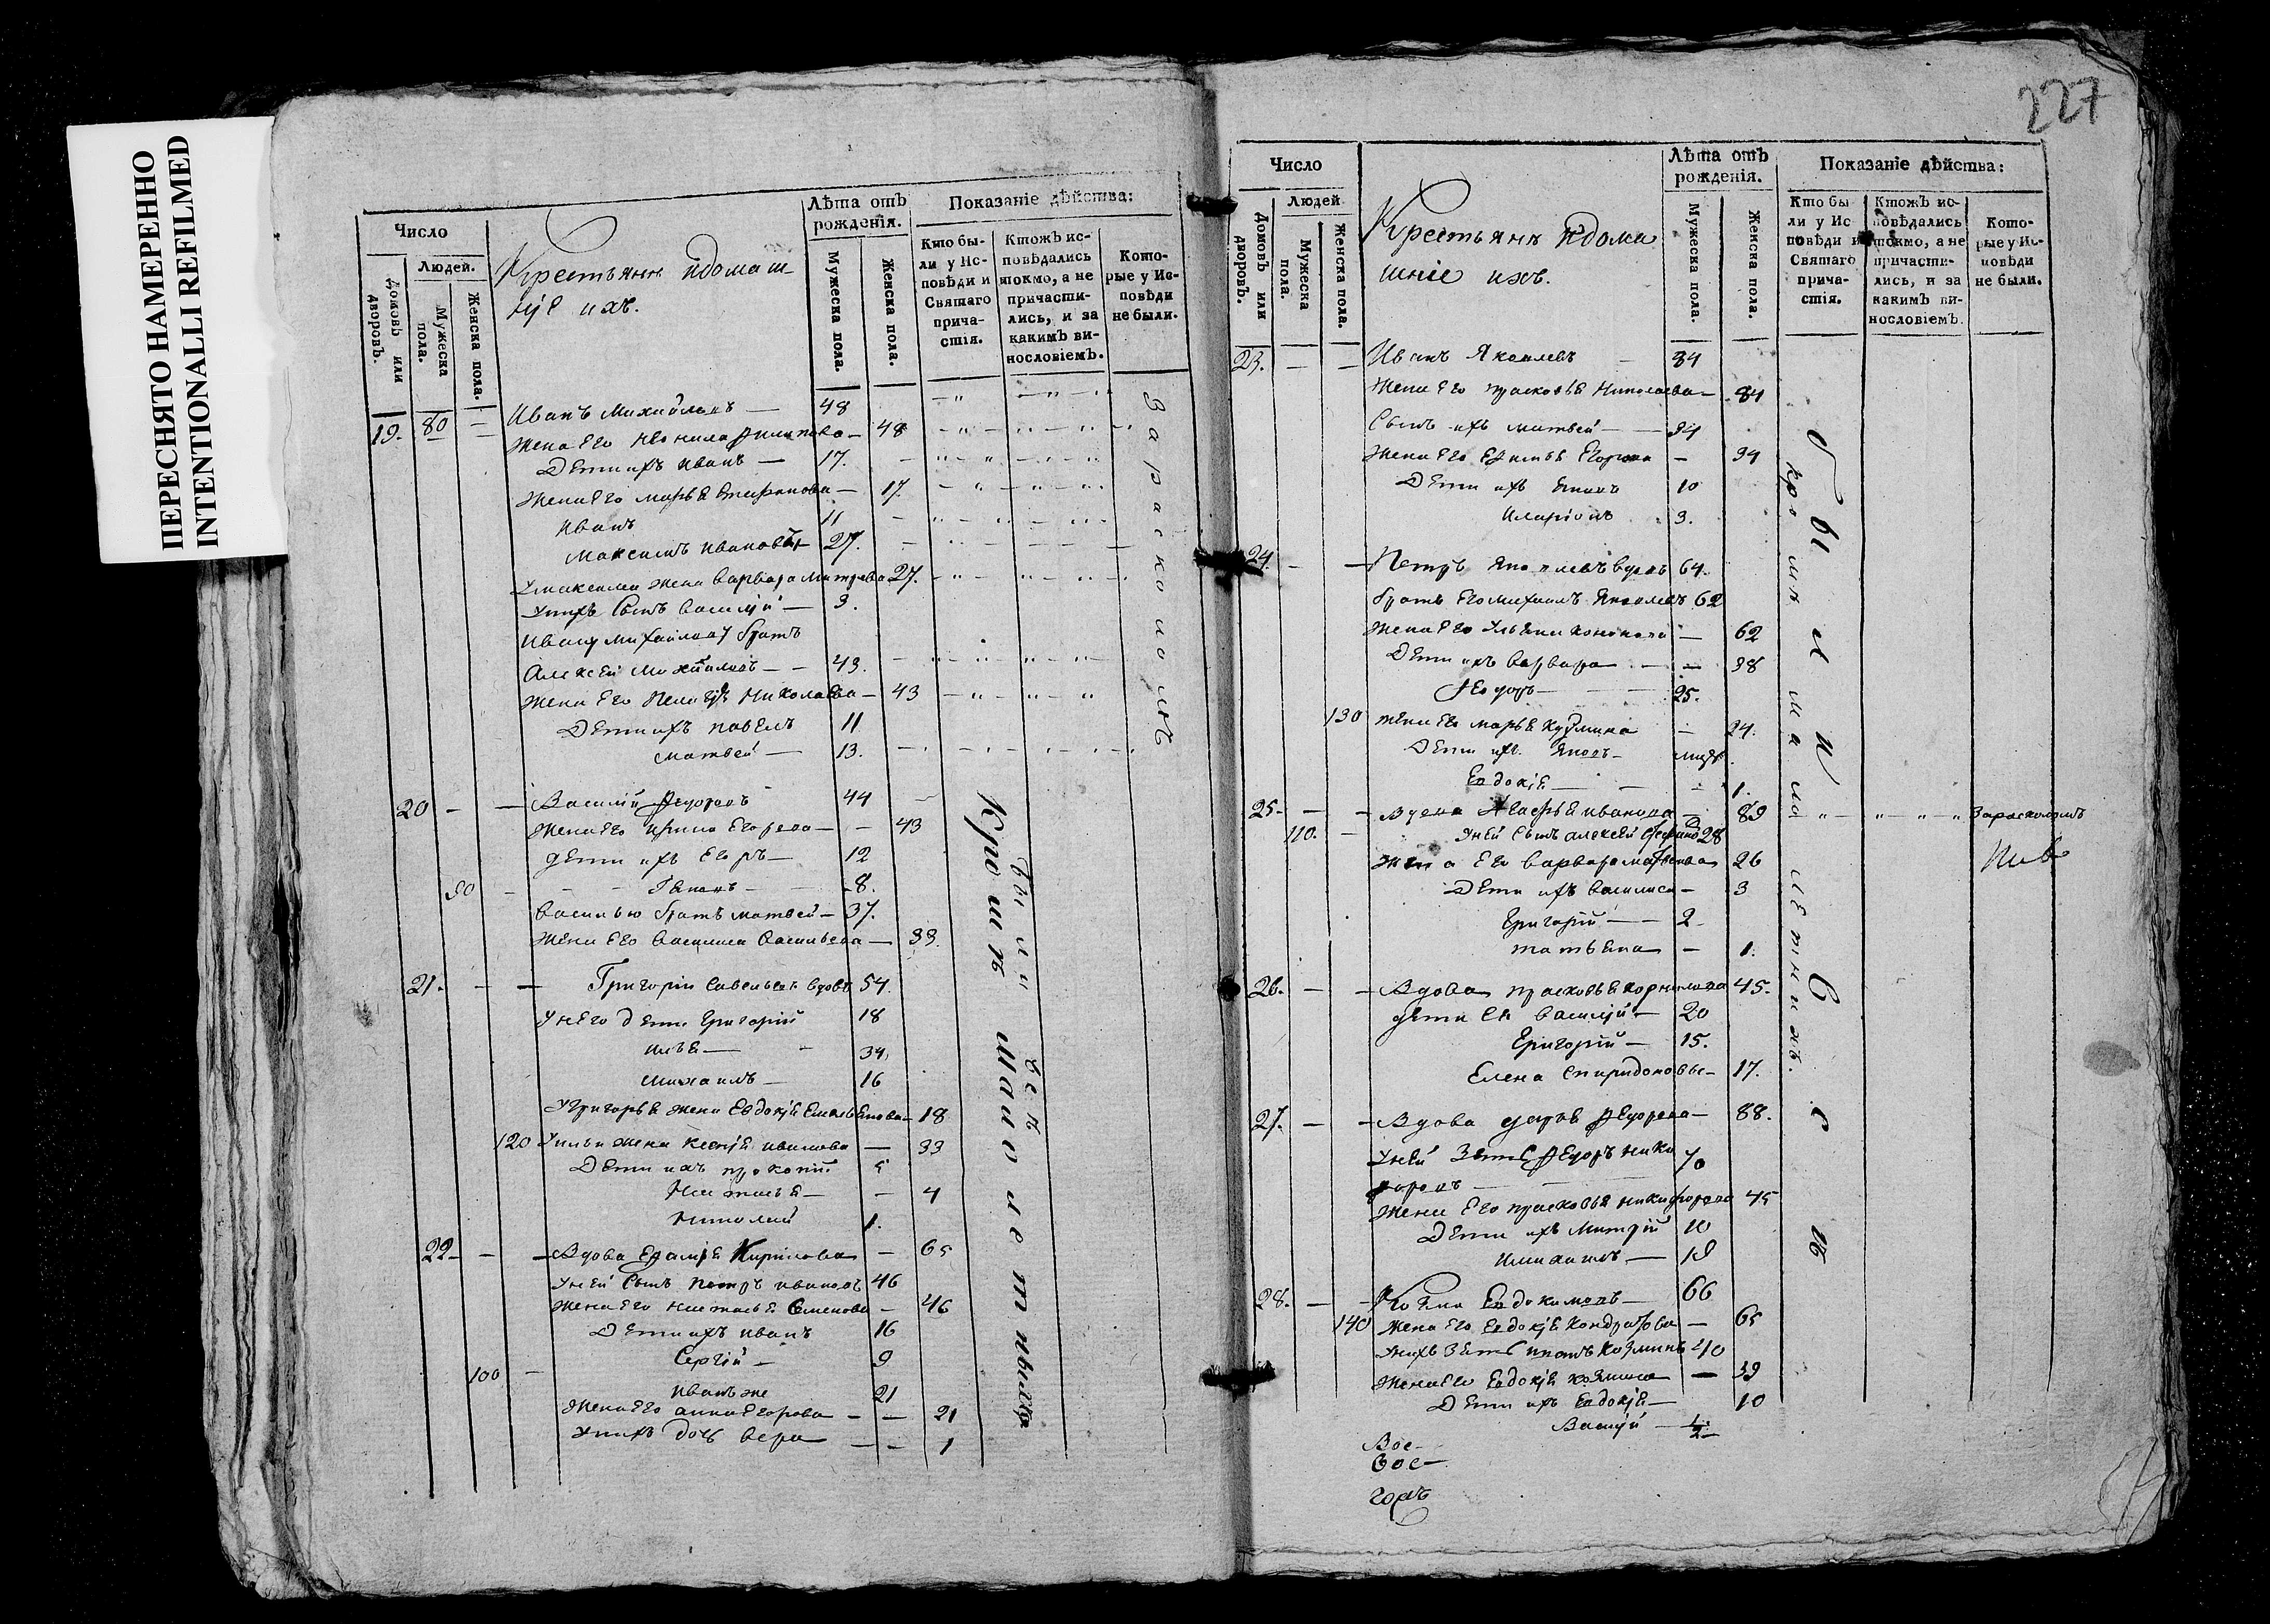 ПЕРЕСНЯТО НАМЕРЕННО
INTENTIONALLI REFILMED
Число
Людей.
Домовъ или дворовъ.
Мужеска пола.
Женска пола.
Крестьянѣ идомаш-
ніе ихъ.
Лѣта отъ рожденія.
Мужеска пола.
Женска пола.
Показаніе дѣйства:
Кто бы-
ли у Ис-
повѣди и
Святаго
прича-
стія.
Ктожъ ис-
повѣдались
токмо, а не
причасти-
лись, и за
какимъ ви-
нословіемъ.
Кото-
рые у Ис-
повѣди
не были.
19. 80 Иванъ Михайловъ — 48
Жена Его Неонила Филипова — 48
Дети ихъ Иванъ — 17.
Жена Его марья — 17.
Иванъ 11
Максимъ Ивановъ 27.
Умаксима жена Варвара 27.
Унихъ сынъ Василій — 3.
Ивану Михайлову братъ
Алексей Михайловъ — 43.
Жена Его Пелагея Николаева — 43
Дети ихъ павелъ 11
матвей — 13.
За расколомъ
20 — — Василій Федоровъ 44
Жена Его Ирина Егорова — 43
дети ихъ Егоръ — 12
90 — 8.
Василью братъ матвей — 37.
Жена Его Василиса Васильева — 33.
21. — — Григорій Савельевъ вдовъ 54.
Унего дети Григорій 18
илья — 34.
михаилъ — 16
Угригорья жена Евдокія Емельянова — 18
120 Уильи жена Ксенія иванова — 33
Дети ихъ прокопій 5
Наталья — 4
Николай 1.
22 — — Вдова Кирилова — 65
Уней сынъ Петръ ивановъ 46
Жена Его Наталья Семенова — 46
Дети ихъ иванъ 16
Сергій — 9
100 — иванъ же 21
Жена Его анна Егорова — 21
Унихъ дочь вера — 1
Были всѣ
Кромѣ малолетныхъ
227
Число
Людей
Домовъ или дворовъ.
Мужеска пола.
Женска пола.
Крестьянѣ идома
шніе ихъ.
Лѣта отъ рожденія.
Мужеска пола.
Женска пола.
Показаніе дѣйства:
Кто бы
ли у Ис
повѣди и
Святаго
прича-
стія.
Ктожъ ис-
повѣдались
токмо, а не
причасти-
лись, и за
какимъ ви-
нословіемъ.
Кото-
рые у Ис-
повѣди
не были.
23. — — Иванъ Яковлевъ — 84
Жена Его прасковья Николаева — 84
Сынъ ихъ матвей — 34
Жена Его Егорова — 34
Дети ихъ 10
Иларіонъ 3.
24. — — Петръ Яковлевъ вдовъ 64.
братъ Его михаилъ Яковлевъ 62
Жена Его Ульяна — 62
Дети ихъ варвара — 38
Федоръ — 25.
130 жена Его марья Кузмина — 24.
Дети ихъ Яковъ —
Евдокія — 1.
25 — — Вдова Агафья иванова — 89 За расколомъ
110. — Уней сынъ алексей 28
Жена Его варвара матвеева 26
Дети ихъ василиса — 3
Григорій — 2
татьяна — 1.
26. — — Вдова прасковья корнилова 45.
дети Ея Василій — 20
Григорій — 15.
Елена спиридонова — 17.
27. — — Вдова дарья Федорова — 88.
Уней зять Федоръ ники
форовъ — 70
Жена Его прасковья никифорова 45
Дети ихъ Митрій 20
имихаилъ — 19
28. — — Козма Евдокимовъ — 66
140 Жена Его Евдокія Кондратова — 65
Унихъ зять Козминъ 40
Жена Его Евдокія козмина — 39
Дети ихъ Евдокія — 10
Василій —
Были Всѣ
кромѣ малолетнихъ.
Вос-
Вос-